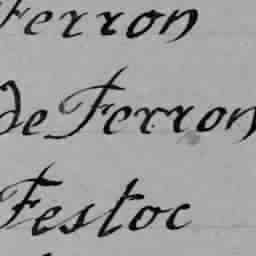 Ferron
de Ferron
Festoc